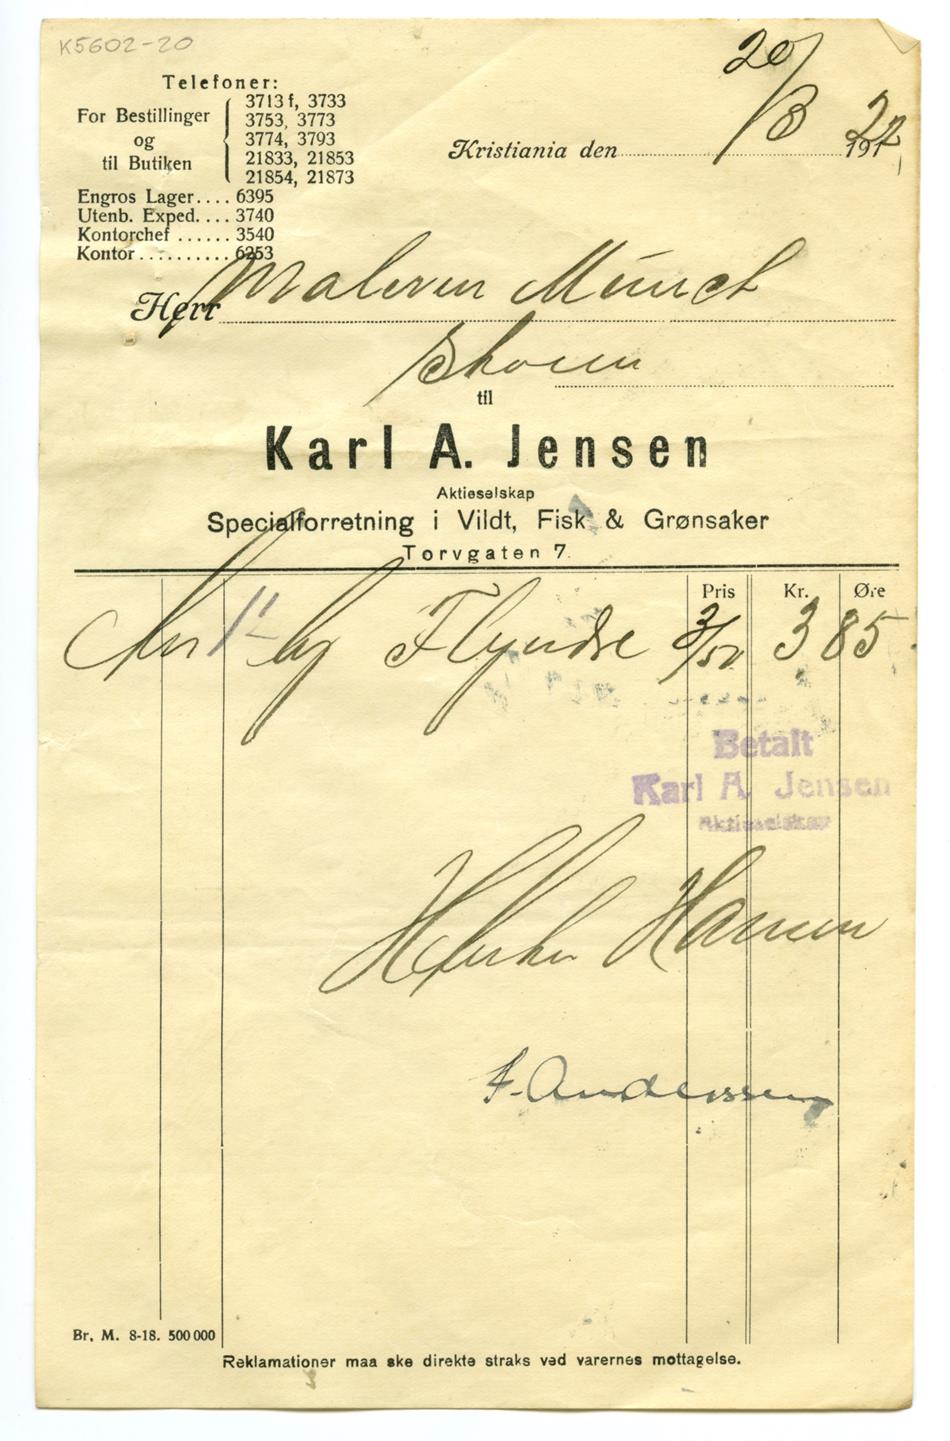 K5602-20
Telefoner:
For Bestillinger og til Butiken
3713 f, 3733
3753, 3773
3774, 3793
21833, 21853
21854, 21873
Engros Lager.... 6395
Utenb. Exped.... 3740
Kontorchef ...... 3540
Kontor.......... 6253
Kristiania den 20/8 22
Herr Maleren Munch
Skøien
til
Karl A. Jensen
Aktieselskap
Specialforretning i Vildt, Fisk & Grønsaker
Torvgaten 7.
Pris Kr. Øre
1- kg Flyndre 3/50 3 85
Betalt
Karl A. Jensen
Aktieselskap
Hansen
F. Anderssen
Br. M. 8-18. 500 000
Reklamationer maa ske direkte straks ved varernes mottagelse.